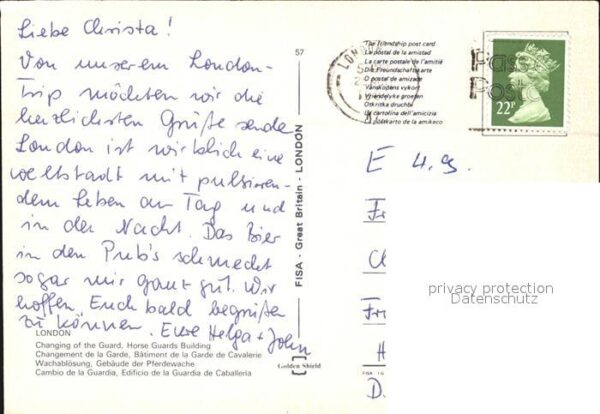 Liebe Christa!
Von unserem London-
Trip möchten wir die
herzlichsten Grüße sende
London ist wirklich eine
Weltstadt mit pulsieren-
dem Leben am Tag und
in der Nacht. Das Bier
in den Pub's schmeckt
sogar mir ganz gut. Wir
hoffen, Euch bald begrüßen
zu können. Eure Helga + John
LONDON
Changing of the Guard, Horse Guards Building
Changement de la Garde, Bâtiment de la Garde de Cavalerie
Wachablösung, Gebäude der Pferdewache
Cambio de la Guardia, Edificio de la Guardia de Caballeria
57
FISA - Great Britain - LONDON
Golden Shield
LONDON
The friendship post card
La postal de la amistad
La carte postale de l'amitié
Die Freundschaftskarte
O postal de amizade
Vänskapens vykort
Vriendelyke groeten
Otkritka druchba
La cartolina dell'amicizia
La postkarto de la amikeco
22P
E 4.9.
privacy protection
Datenschutz
H
D.